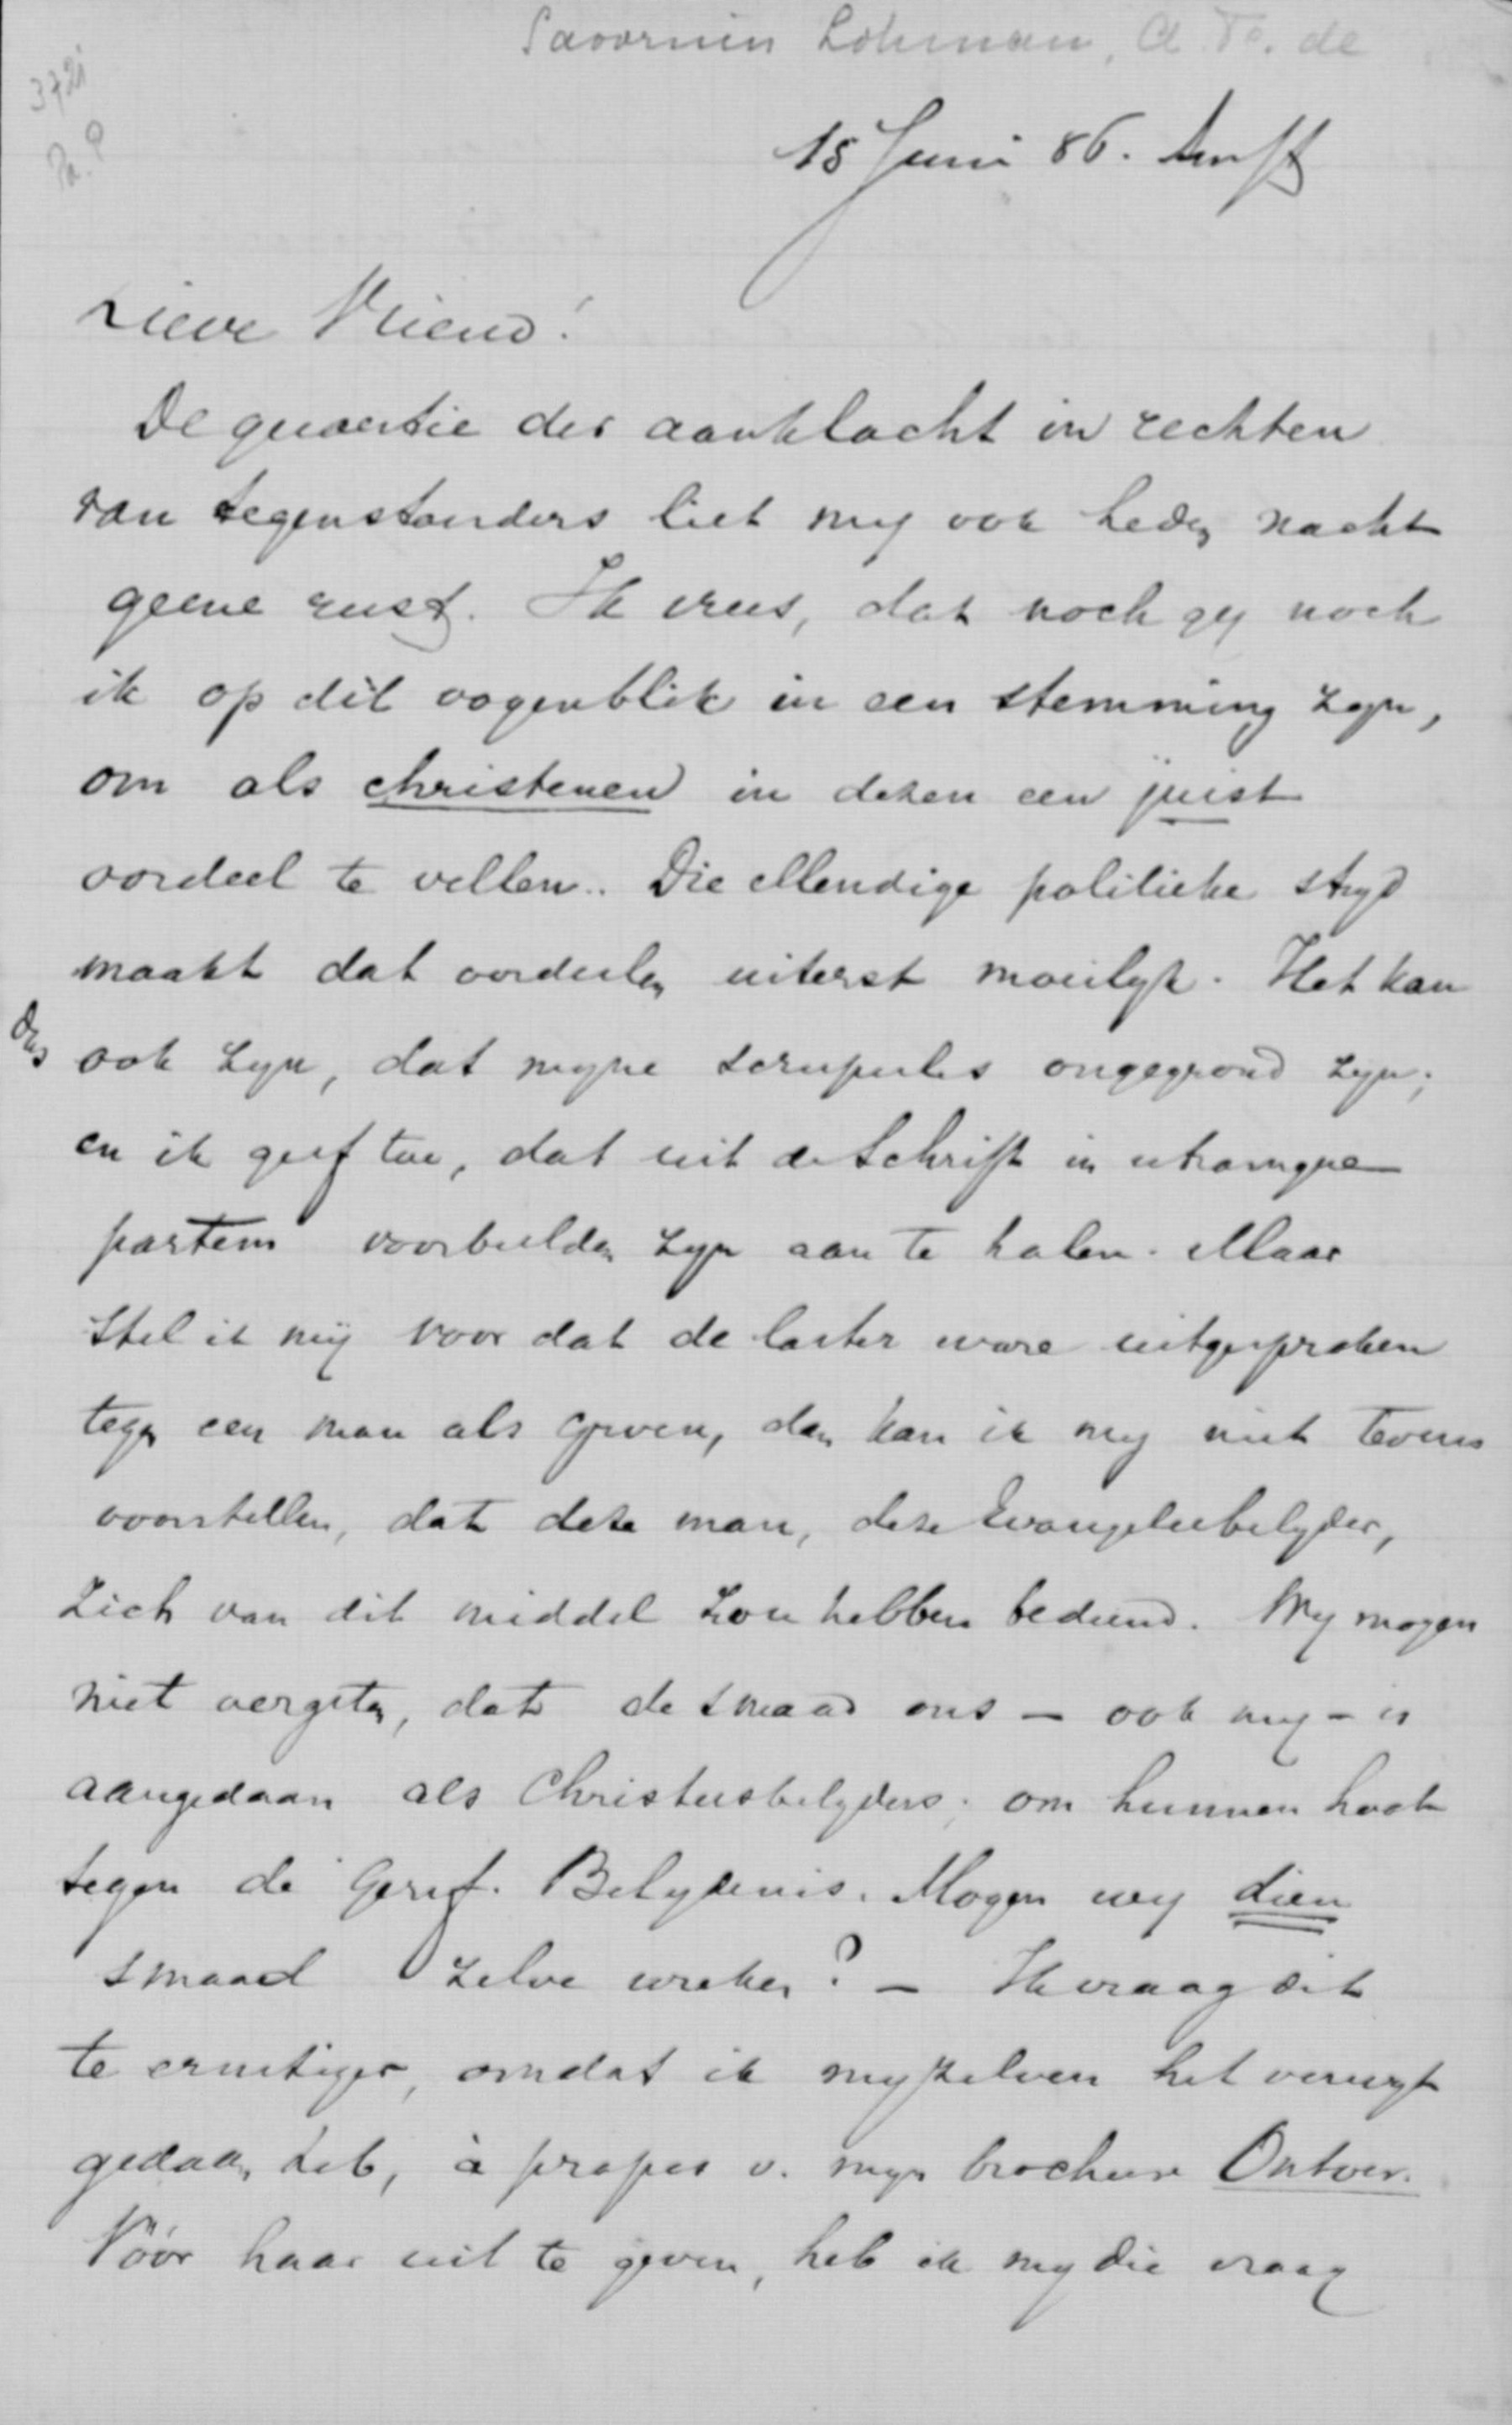 Savornin Lohman, A. F. de
3721
Pa. P
15 Juni 86. Amst
Lieve Vriend!
De quaestie der aanklacht in rechten
van tegenstanders liet my ook heden nacht
geene rust. Ik vrees, dat noch gy noch
ik op dit oogenblik in een stemming zyn,
om als christenen in dezen een juist
oordeel te vellen. Die ellendige politieke stryd
maakt dat oordeelen uiterst moeilyk. Het kan
dus ook zyn, dat myne scrupules ongegrond zyn;
en ik geef toe, dat uit de Schrift in utramque
partem voorbeelden zyn aan te halen. Maar
stel ik mij voor dat de laster ware uitgesproken
tegen een man als Groen, dan kan ik my niet tevens
voorstellen, dat deze man, deze Evangeliebelyder,
zich van dit middel zou hebben bediend. Wy mogen
niet vergeten, dat de smaad ons – ook my – is
aangedaan als Christusbelyders; om hunnen haat
tegen de Geref. Belydenis. Mogen wy dien
smaad zelve wreken? – Ik vraag dit
te ernstiger, omdat ik myzelven het verwyt
gedaan heb, à propos v. myn brochure Ontver.
Vóór haar uit te geven, heb ik my die vraag